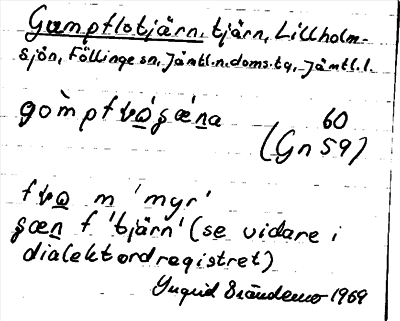 Gumpflotjärn, tjärn, Lillholm-
sjön, Föllinge sn, Jämtl.n. doms.tg, Jämtl.l.
60
(Gn 59)
m 'myr'
f 'tjärn' (se vidare i
dialektordregistret)
Ingrid Brändemo 1969